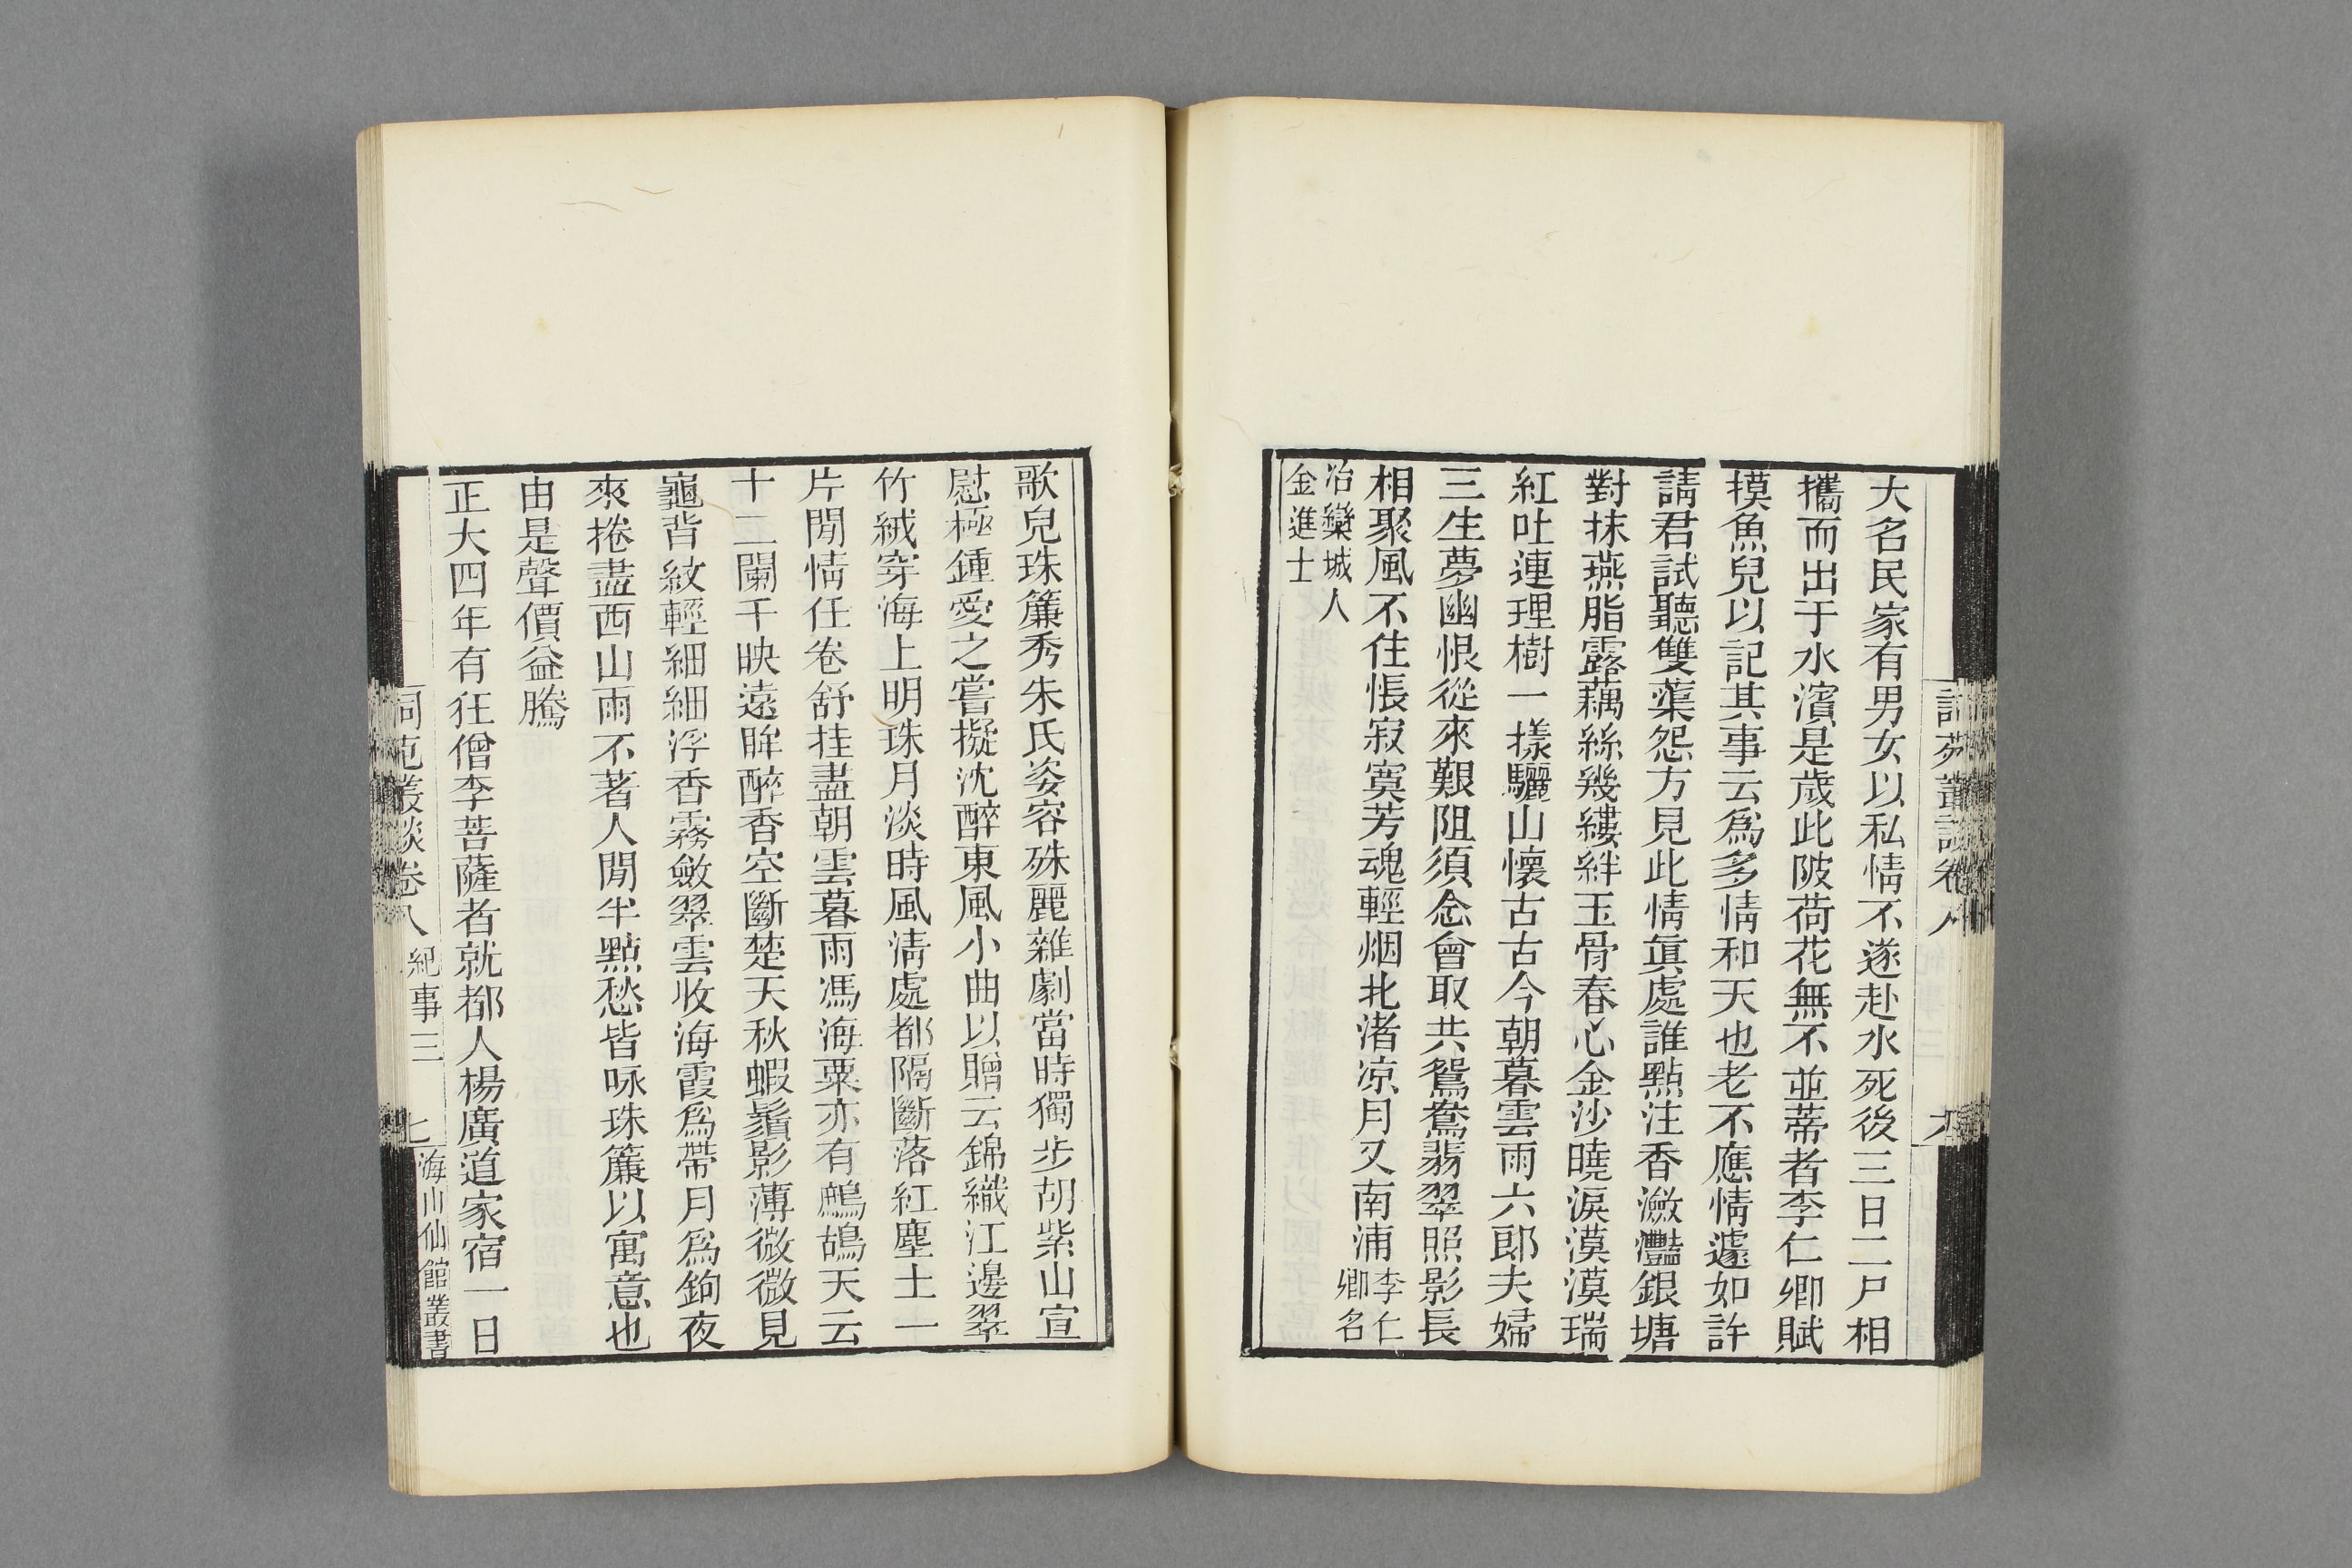 大名民家有男女以私情不遂赴水死後三日二尸相
攜而出于水濱是歲此陂荷花無不並蒂者李仁卿賦
摸魚兒以記其事云爲多情和天也老不應情遽如許
請君試聽雙蕖怨方見此情眞處誰點注香瀲灩銀塘
對抹燕脂露藕絲幾縷絆玉骨春心金沙曉淚漠漠瑞
紅吐連理樹一樣驪山懷古古今朝暮雲雨六郎夫婦
三生夢幽恨從來艱阻須念會取共鴛鴦翡翠照影長
相聚風不住悵寂寞芳魂輕烟北渚凉月又南浦李仁卿名
冶欒城人
金進士
歌兒珠簾秀朱氏姿容殊麗雜劇當時獨步胡紫山宣
慰極鍾愛之嘗擬沈醉東風小曲以贈云錦織江邊翠
竹絨穿海上明珠月淡時風淸處都隔斷落紅塵土一
片閒情任卷舒挂盡朝雲暮雨馮海粟亦有鷓鴣天云
十二闌干映遠眸醉香空斷楚天秋蝦鬚影薄微微見
龜背紋輕細細浮香霧斂翠雲收海霞爲帶月爲鉤夜
來捲盡西山雨不著人閒半點愁皆咏珠簾以寓意也
由是聲價益騰
正大四年有狂僧李菩薩者就都人楊廣道家宿一日
詞苑叢談卷八 紀事三 七 海山仙館叢書